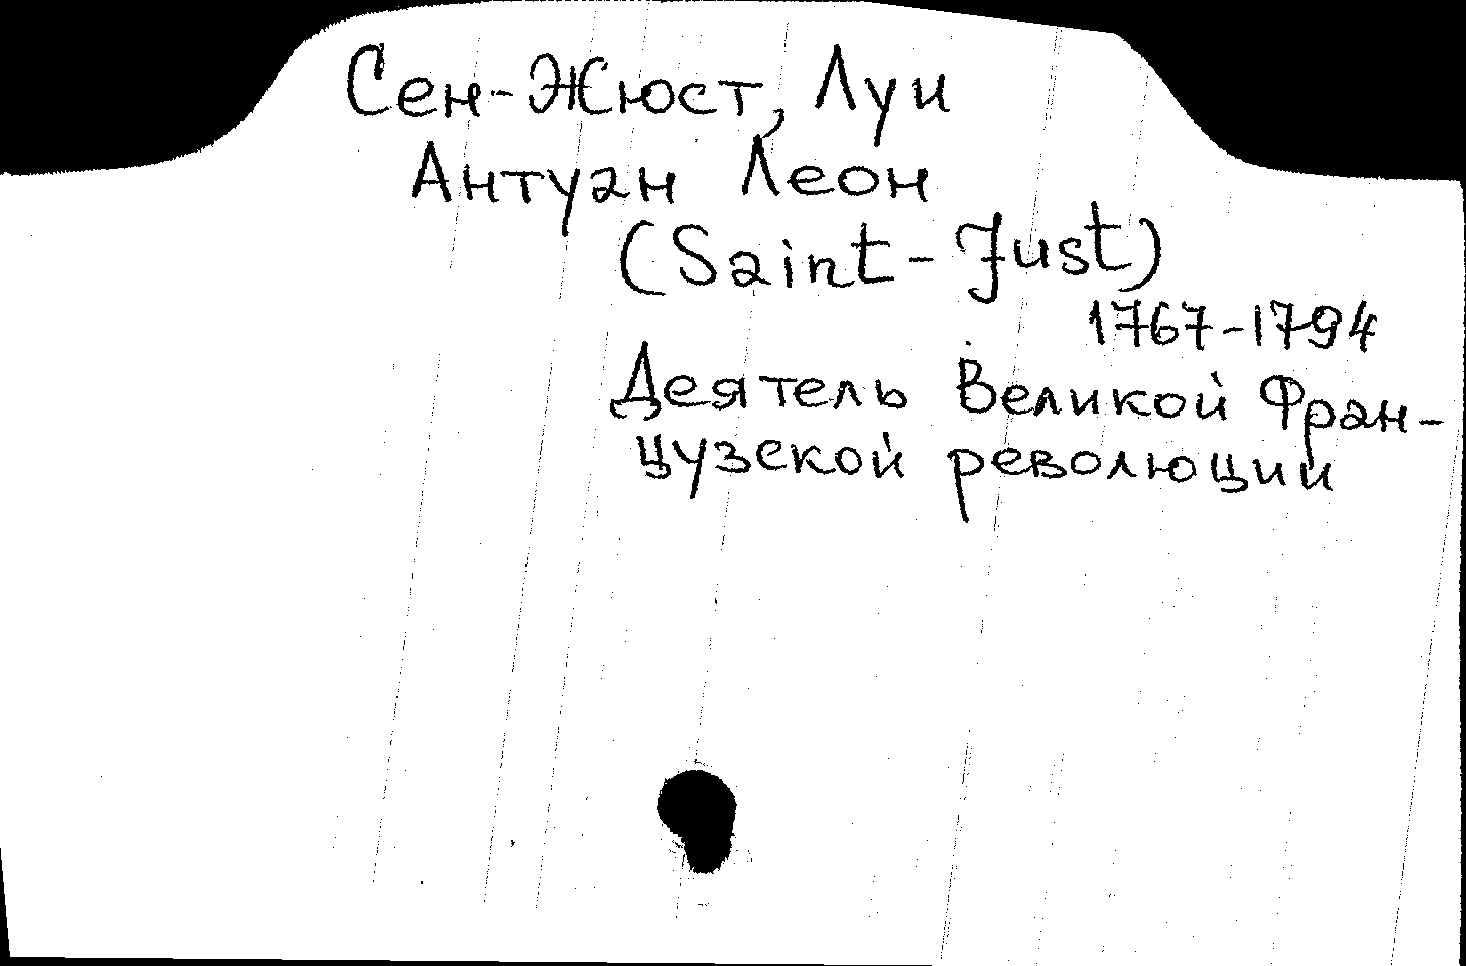 Сен-Жюст, Луи
Антуан Леон
(Saint-Just)
1767-1794
Деятель Великой Фран-
цузской революции